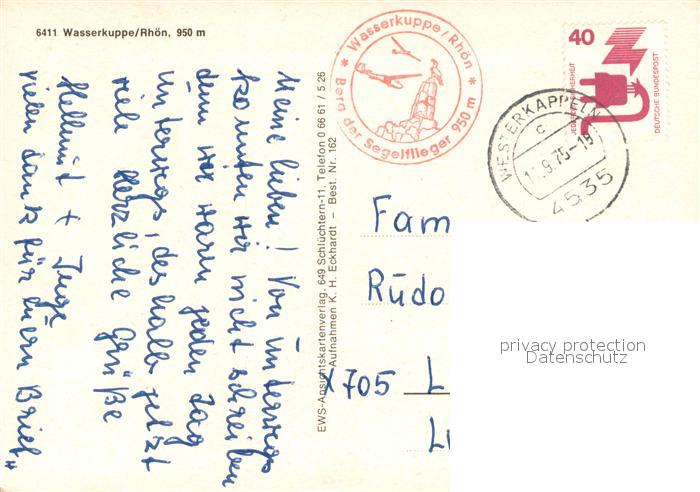 6411 Wasserkuppe/Rhön, 950 m
Meine lieben! Von Unterwegs
konnten wir nicht schreiben
denn wir warn jeden Tag
Unterwegs, deshalb jetzt
viele Herzliche Grüße
Hellmut + Inge
vielen dank für euern Brief"
EWS-Ansichtskartenverlag, 649 Schlüchtern-11, Telefon 0 66 61 / 5 26
Aufnahmen K. H. Eckhardt – Best. Nr. 162
* Wasserkuppe/Rhön *
Berg der Segelflieger 950 m
40
JEDERZEIT SICHERHEIT
DEUTSCHE BUNDESPOST
WESTERKAPPELN
c
.9.75-19
4535
Fam
Rudo
X705 L
privacy protection
Datenschutz